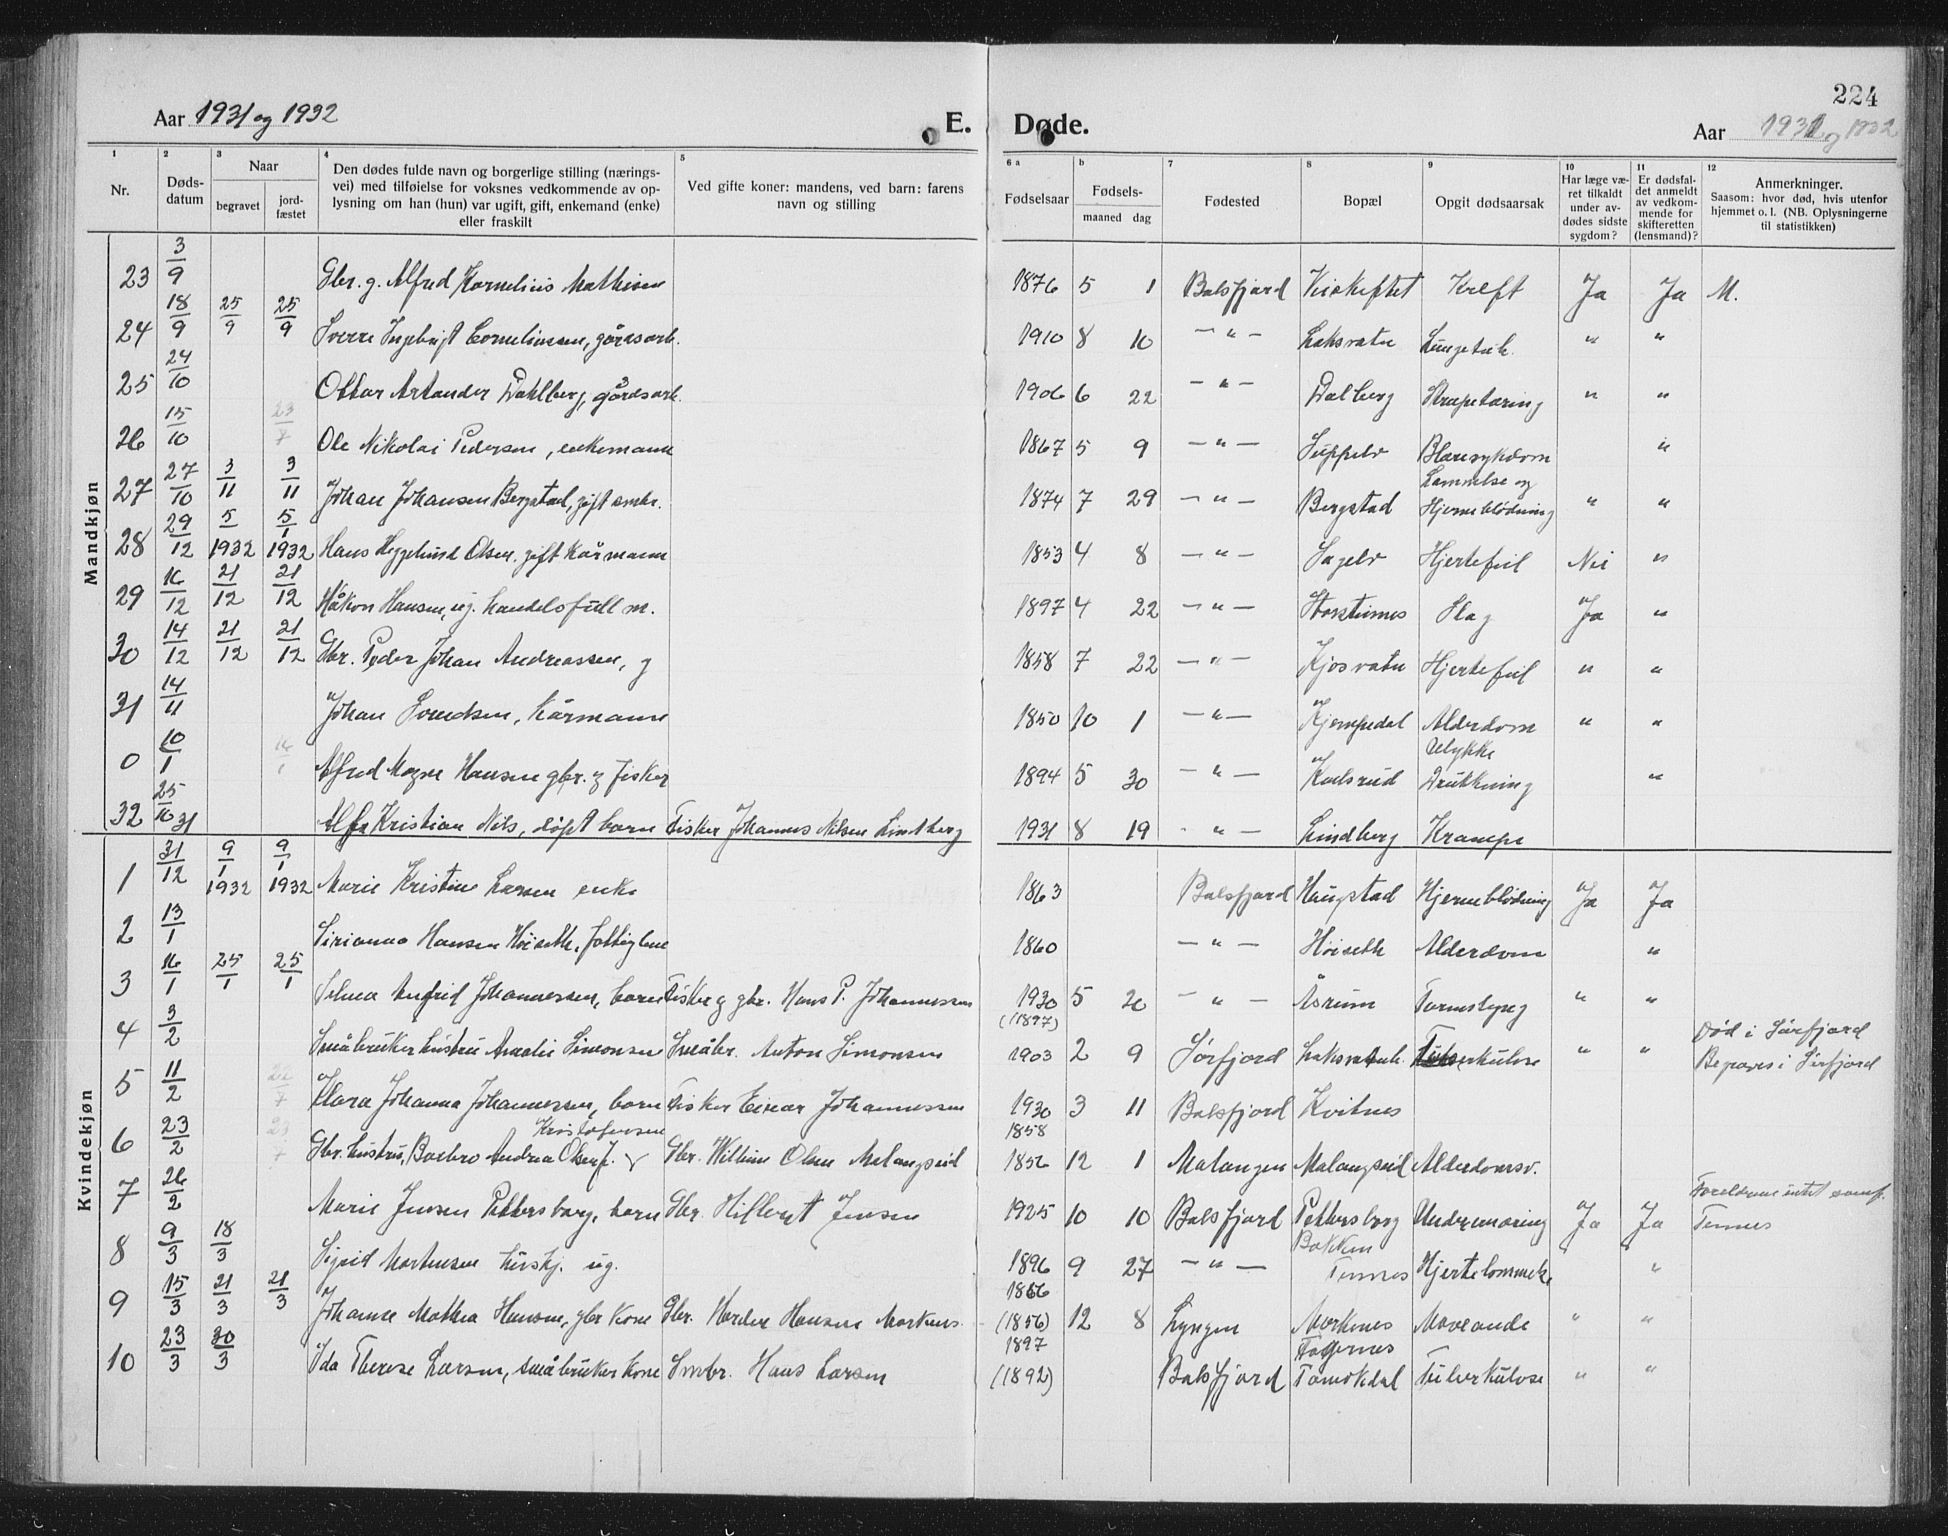 224
Aar 1931 og 1932 E. Døde. Aar 1931 og 1932
1 2 3 4 5 6 a b 7 8 9 10 11 12
Nr. Døds-datum Naar begravet jord-fæstet
Den dødes fulde navn og borgerlige stilling (nærings-
vei) med tilføielse for voksnes vedkommende av op-
lysning om han (hun) var ugift, gift, enkemand (enke)
eller fraskilt
Ved gifte koner: mandens, ved barn: farens
navn og stilling
Fødselsaar Fødsels- maaned dag Fødested Bopæl Opgit dødsaarsak
Har læge væ-
ret tilkaldt
under av-
dødes sidste
sygdom?
Er dødsfal-
det anmeldt
av vedkom-
mende for
skifteretten
(lensmand)?
Anmerkninger.
Saasom: hvor død, hvis utenfor
hjemmet o. l. (NB. Oplysningerne
til statistikken)
Mandkjøn
23 3/9 Gbr. g. Alfred Kornelius Mathisen 1876 5 1 Balsfjord Kreft Ja Ja M.
24 18/9 25/9 25/9 Sverre Ingebrigt Corneliussen, gårdsarb. 1910 8 10 — " — Laksvatn Lungetub. " "
25 24/10 Ottar Artander Dahlberg, gårdsarb. 1906 6 22 — " — Dalberg Strupetæring " "
26 15/10 23/7 Ole Nikolai Pedersen, enkemann 1867 5 9 — " — Suppelv Blæresykdom "
27 27/10 3/11 3/11 Johan Johansen Bergstad, gift smbr. 1874 7 29 — " — Bergstad Lammelse og Hjerneblødning " "
28 29/12 5/1 1932 5/1 1932 Hans Heggelund Olsen, gift kårmann 1853 4 8 — " — Sagelv Hjertefeil Nei "
29 16/12 21/12 21/12 Håkon Hansen, ug. handelsfullm. 1897 4 22 — " — Storsteinnes Slag Ja "
30 14/12 21/12 21/12 Gbr. Peder Johan Andreassen, g 1858 7 22 — " — Kjosvatn Hjertefeil " "
31 14/11 Johan Svendsen, kårmann 1850 10 1 — " — Kjempedal Alderdom " "
0 10/1 16/1 Alfred Magne Hansen gbr. g fisker 1894 5 30 — " — Karlsrud Ulykke Drukning "
32 25/10 31 Alf Kristian Nils, døpt barn Fisker Johannes Nilsen Lindberg 1931 8 19 - " — Lindberg Krampe
Kvindekjøn
1 31/12 9/1 1932 9/1 1932 Marie Kristine Larsen enke 1863 Balsfjord Haugstad Hjerneblødning Ja Ja
2 13/1 Sirianna Hansen Høiseth, fattiglem 1860 — " — Høiseth Alderdom "
3 16/1 25/1 25/1 Selma Angfrid Johannessen, barn Fisker g gbr. Hans P. Johannessen 1930 5 20 — " — Åsrum Tarmslyng " "
4 3/2 Småbruker hustru Amalie Simonsen Småbr. Anton Simonsen (1897) 1903 2 9 Sørfjord Laksvatn Tuberkulose " " Død i Sørfjord Begraves i Sørfjord
5 11/2 22/7 Klara Johanna Johannessen, barn Fisker Einar Johannessen 1930 3 11 Balsfjord Kvitnes
6 23/2 23/7 Gbr. hustru, Barbro Andrea Olsen f. Kristofersen Gbr. Wilhelm Olsen Malangseid 1858 1856 12 1 Malangen Malangseid Alderdomsv.
7 26/2 Marie Jensen Pettersborg, barn Gbr. Hilbert Jensen 1925 10 10 Balsfjord Pettersborg Underernæring Ja Ja Foreldrene intet
8 9/3 18/3 Sigrid Mortensen hushj. ug. 1896 9 27 — " — Bakken Tennes Hjertelammelse " Tennes
9 15/3 21/3 21/3 Johanne Mathea Hansen, gbr kone Gbr. Hansen Markenes 1866 (1856) 12 8 Lyngen Markenes Mavesonde " "
10 23/3 30/3 Ida Therese Larsen, småbruker kone Smbr. Hans Larsen 1897 (1892) Balsfjord Fagernes Tamokdal Tuberkulose " "